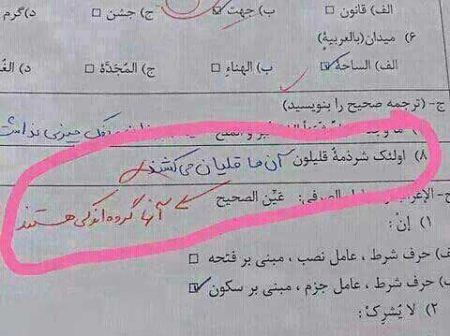 الف) قانون □ ب) جهت □ ج) جشن □ د) گرم
۶) میدان (بالعربیة)
الف) الساحة ☑ ب) الهناء □ ج) المُجَدَّة □ د)
ج- (ترجمه صحیح را بنویسید)
چیزی نداشت
۸) اولئک شرذمةُ قلیلون آن ها قلیان می کشند
آنها گروه اندکی هستند
عَیِّن الصحیح
۱) اِنْ :
حرف شرط ، عامل نصب ، مبنی بر فتحه □
ب) حرف شرط ، عامل جزم ، مبنی بر سکون ☑
۲) لا یُشرِکْ :